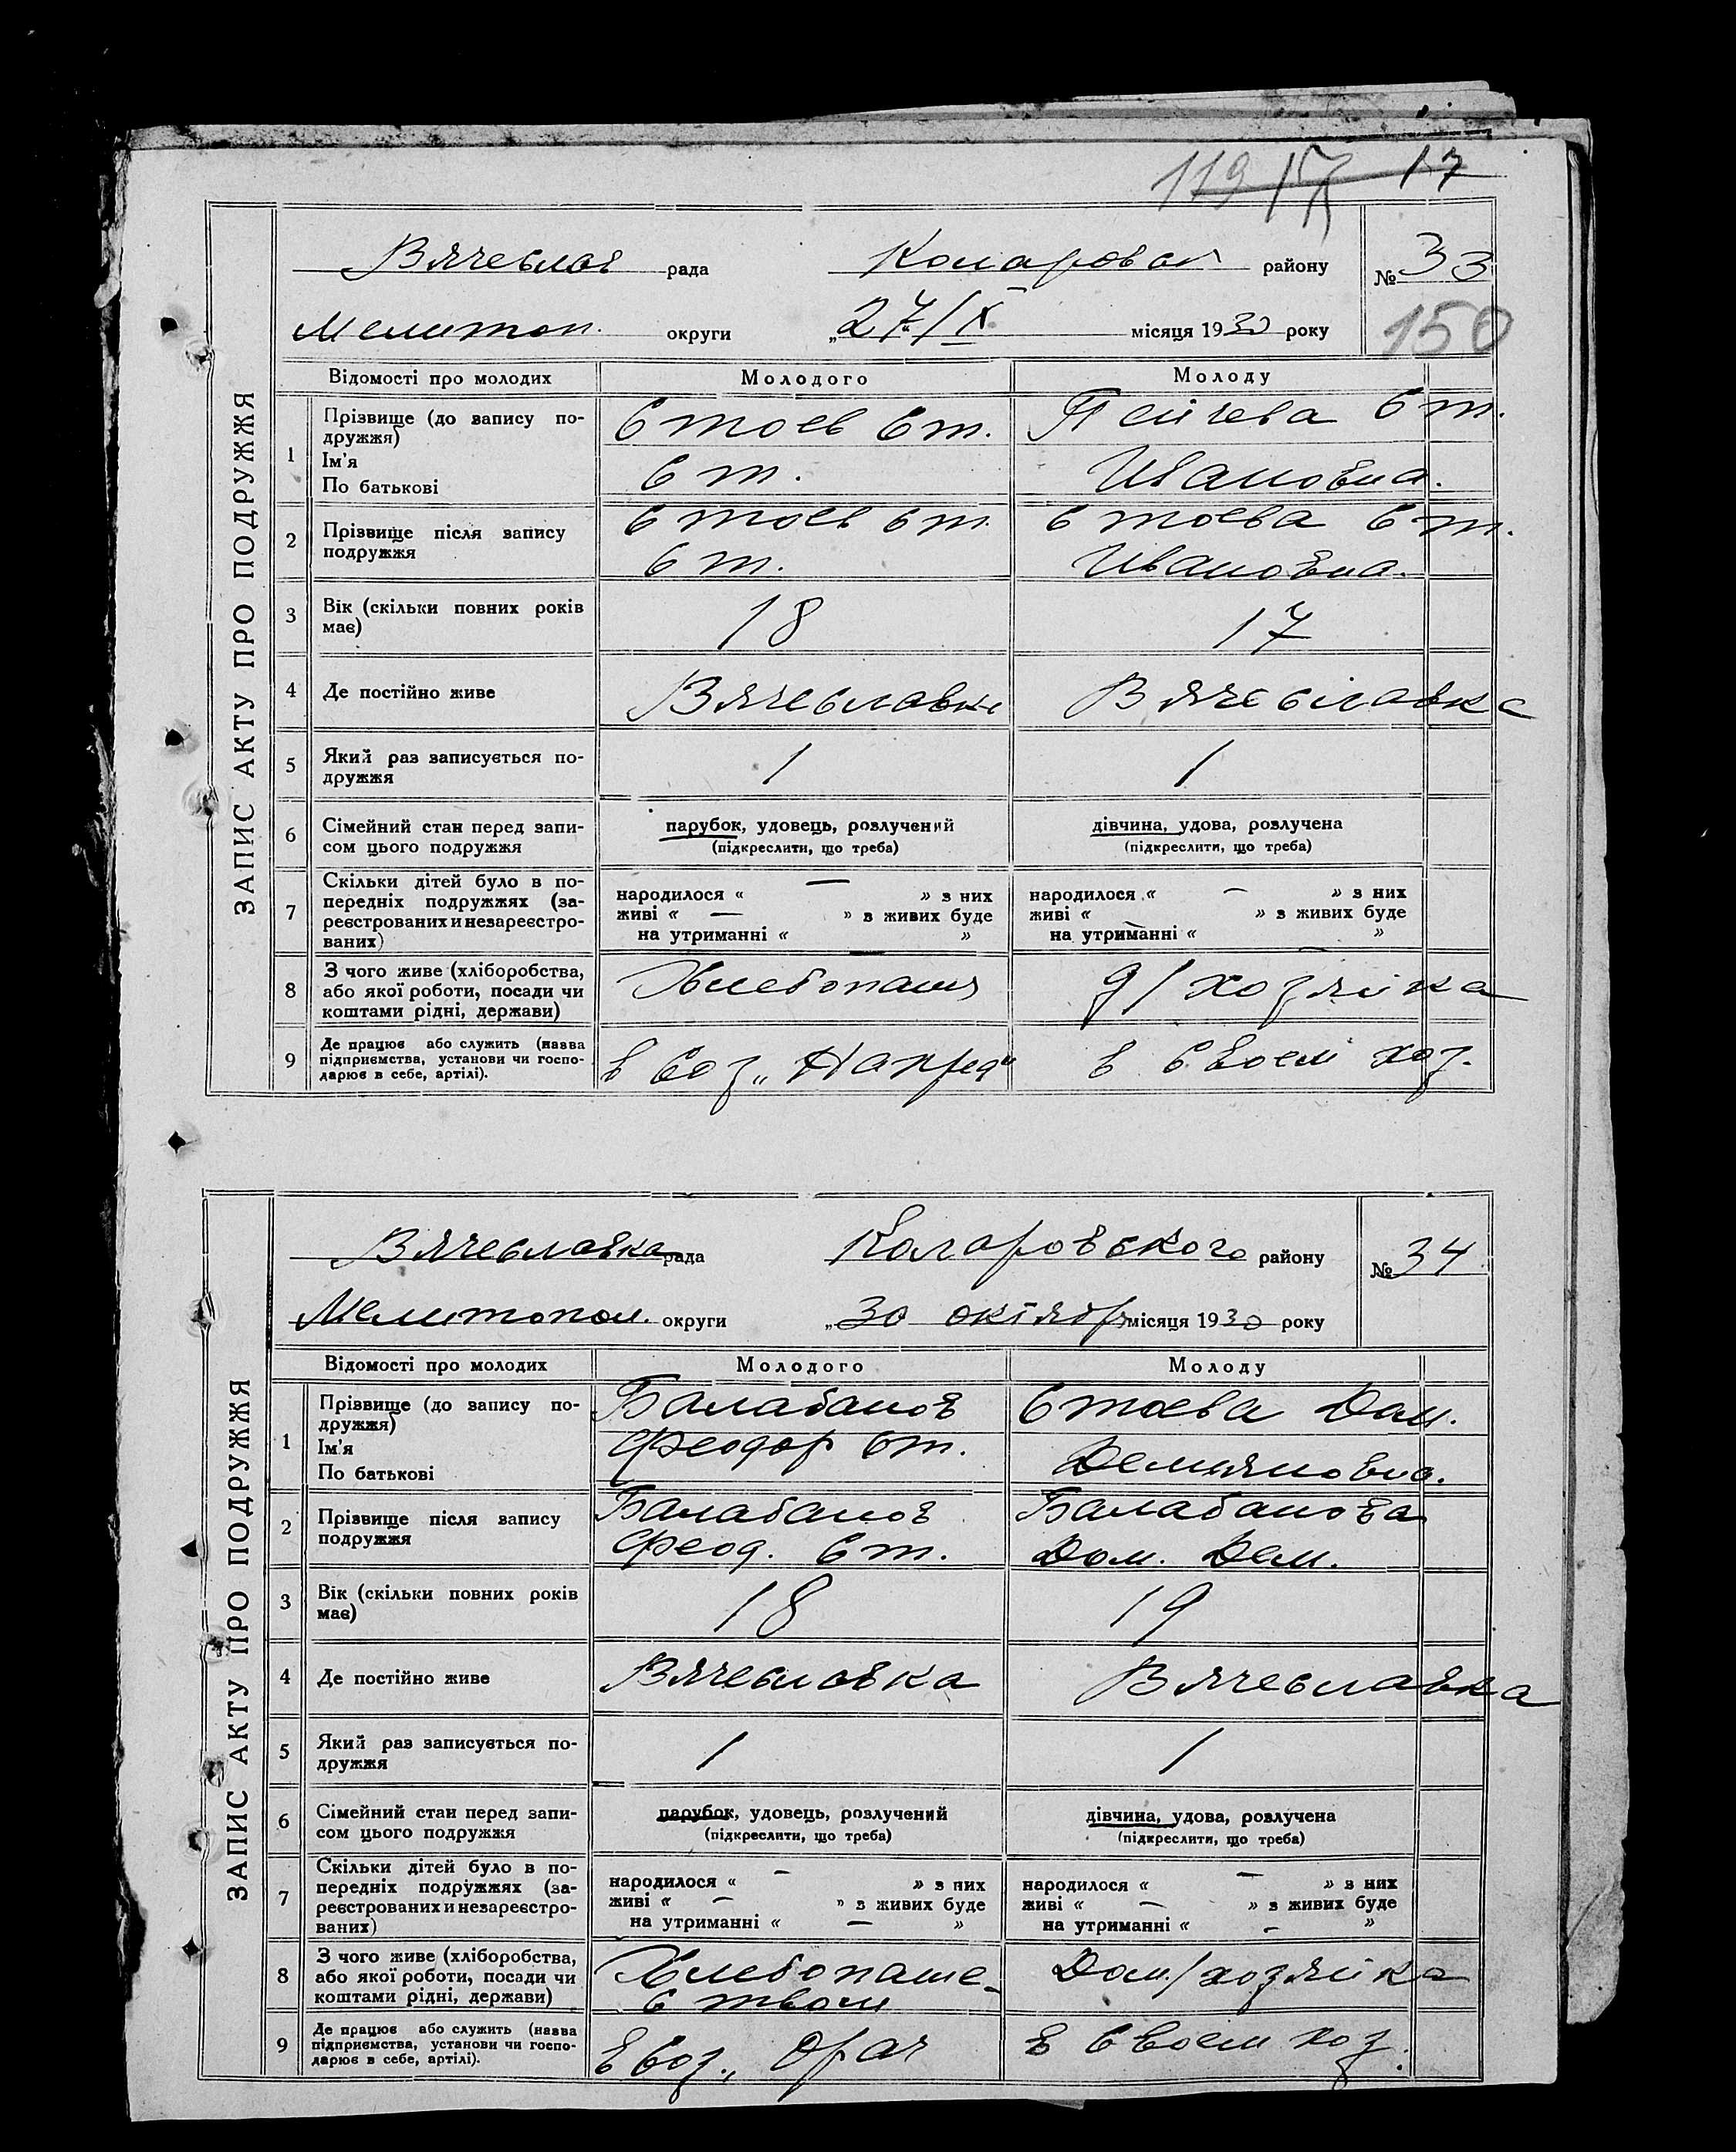 119 17 17
ЗАПИС АКТУ ПРО ПОДРУЖЖЯ
Вячеслав рада Коларовск району № 33
Мелитоп. округи „27/IX місяця 1930 року 150
Відомості про молодих Молодого Молоду
1 Прізвище (до запису по-
дружжя)
Ім'я
По батькові
Стоев Ст.
Ст.
Пейчева Ст.
Ивановна.
2 Прізвище після запису
подружжя
Стоев Ст
Ст.
Стоева Ст.
Ивановна.
3 Вік (скільки повних років
має)
18 17
4 Де постійно живе Вячеславка Вячеславка
5 Який раз записується по-
дружжя
1 1
6 Сімейний стан перед запи-
сом цього подружжя
парубок, удовець, розлучений
(підкреслити, що треба)
дівчина, удова, розлучена
(підкреслити, що треба)
7 Скільки дітей було в по-
передніх подружжях (за-
реєстрованих и незареєстро-
ваних)
народилося « — » з них
живі « — » з живих буде
на утриманні « — »
народилося « — » з них
живі « — » з живих буде
на утриманні « — »
8 З чого живе (хліборобства,
або якої роботи, посади чи
коштами рідні, держави)
Хлебопаш
д/хозяйка
9 Де працює або служить (назва
підприємства, установи чи госпо-
дарює в себе, артілі).
в Соз „Напред"
в своем хоз.
ЗАПИС АКТУ ПРО ПОДРУЖЖЯ
Вячеславка рада Коларовского району № 34
Мелитопол. округи „30 октября місяця 1930 року
Відомості про молодих Молодого Молоду
1 Прізвище (до запису по-
дружжя)
Ім'я
По батькові
Балабанов
Феодор Ст.
Стоева Дом.
Демяновна.
2 Прізвище після запису
подружжя
Балабанов
Феод. Ст.
Балабанова
Дом. Дем.
3 Вік (скільки повних років
має)
18 19
4 Де постійно живе Вячеславка Вячеславка
5 Який раз записується по-
дружжя
1 1
6 Сімейний стан перед запи-
сом цього подружжя
парубок, удовець, розлучений
(підкреслити, що треба)
дівчина, удова, розлучена
(підкреслити, що треба)
7 Скільки дітей було в по-
передніх подружжях (за-
реєстрованих и незареєстро-
ваних)
народилося « — » з них
живі « — » з живих буде
на утриманні « — »
народилося « — » з них
живі « — » з живих буде
на утриманні « — »
8 З чого живе (хліборобства,
або якої роботи, посади чи
коштами рідні, держави)
Хлебопаше-
ством
Дом./хозяйка
9 Де працює або служить (назва
підприємства, установи чи госпо-
дарює в себе, артілі).
в Соз „Орач
в своем хоз.